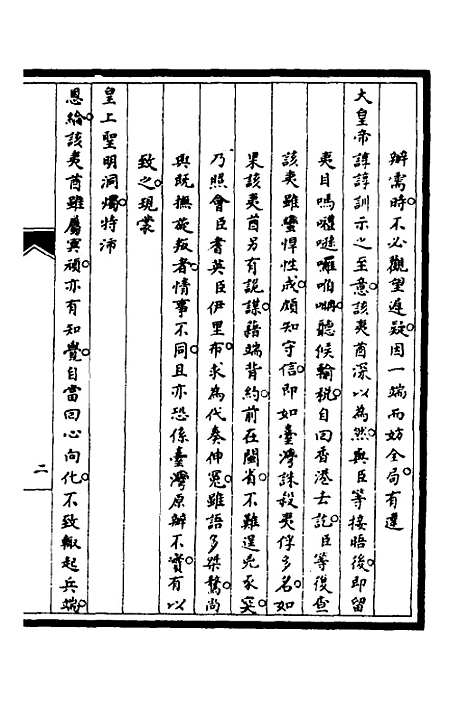 辦需時。不必觀望遲疑。因一端而妨全局。有違
大皇帝諄諄訓示之至意。該夷酋深以為然。與臣等接晤後。即留
夷目嗎𠼤噠囉咱㖿。聽候輸稅。自回香港去訖。臣等復查
該夷雖蠻悍性成。頗知守信。即如臺灣誅殺夷俘多名。如
果該夷酋另有詭謀。藉端背約。前在閩省不難逞兇永突。
乃照會臣耆英臣伊里布。求為代奏伸冤。雖語多桀驁。尚
與既撫旋叛者。情事不同。且亦恐係臺灣原辦不實。有以
致之。現蒙
皇上聖明洞燭。特沛
恩綸。該夷酋雖屬冥頑。亦有知覺。自當回心向化。不致輒起兵端。
二